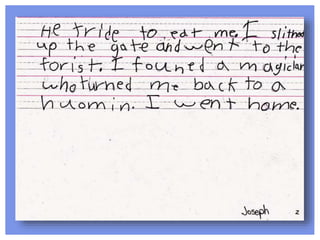 He tride to eat me. I slithed
up the gate and went to the
forist. I founed a magician
who turned me back to a
huomin. I went home.
Joseph 2